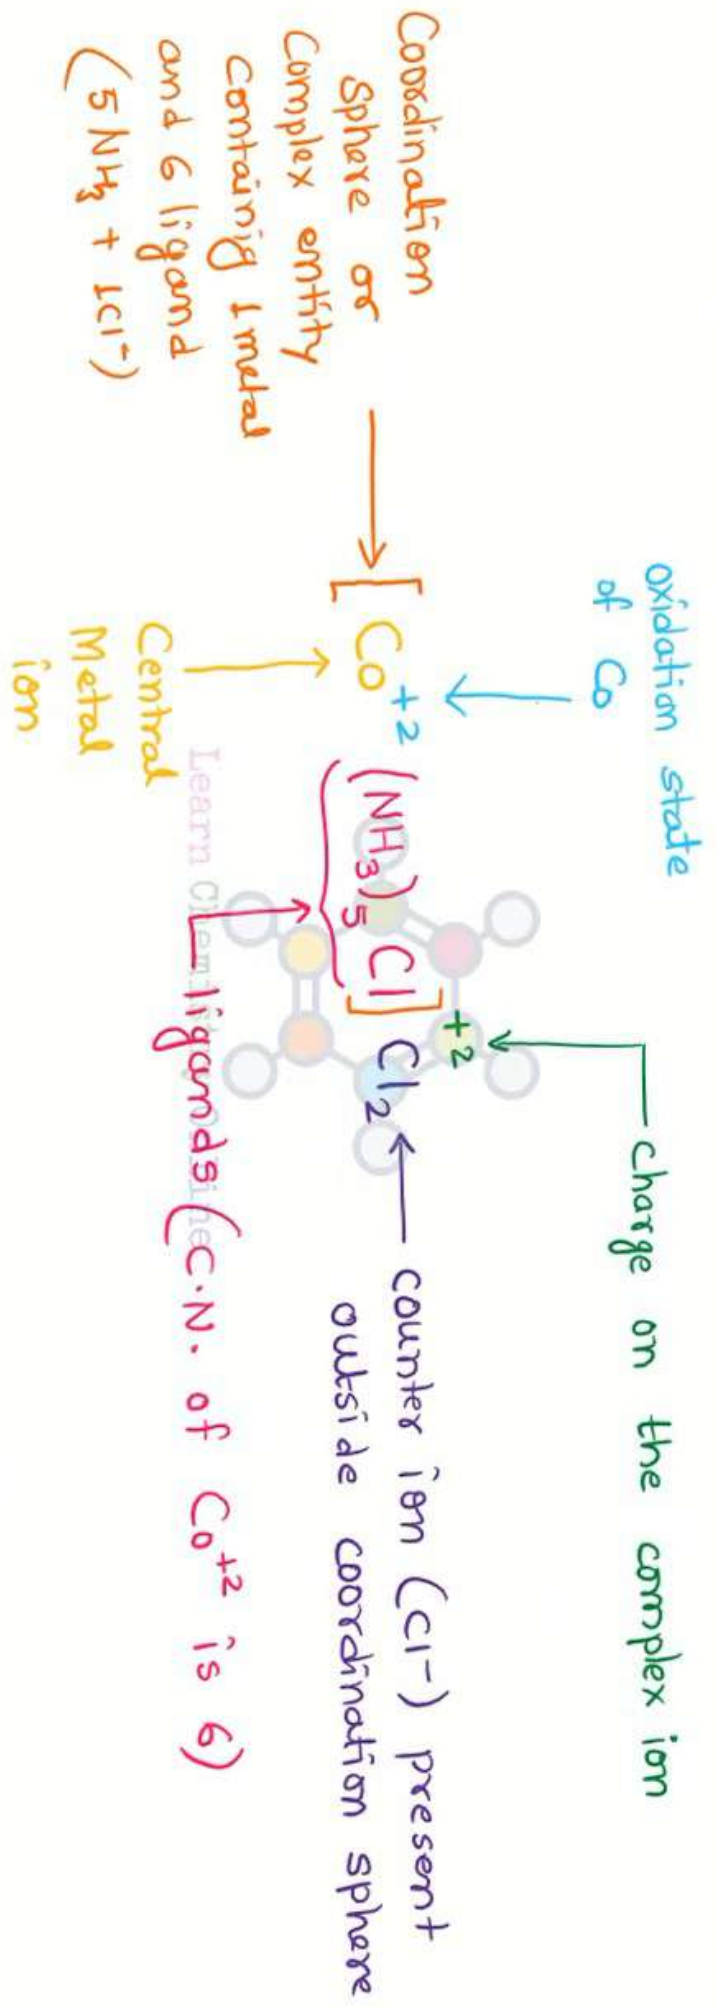 oxidation state
of Co
charge on the complex ion
Coordination
sphere or
Complex entity
containig 1 metal
and 6 ligand
(5 NH3 + 1Cl-)
[Co+2 (NH3)5 Cl]+2 Cl2
counter ion (Cl-) present
outside coordination sphere
Central
Metal
ion
ligands (C.N. of Co+2 is 6)
Learn Chemistry Online